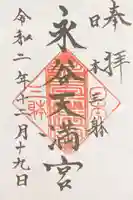 奉拝
日本三躰
永谷天満宮
令和二年十二月十九日